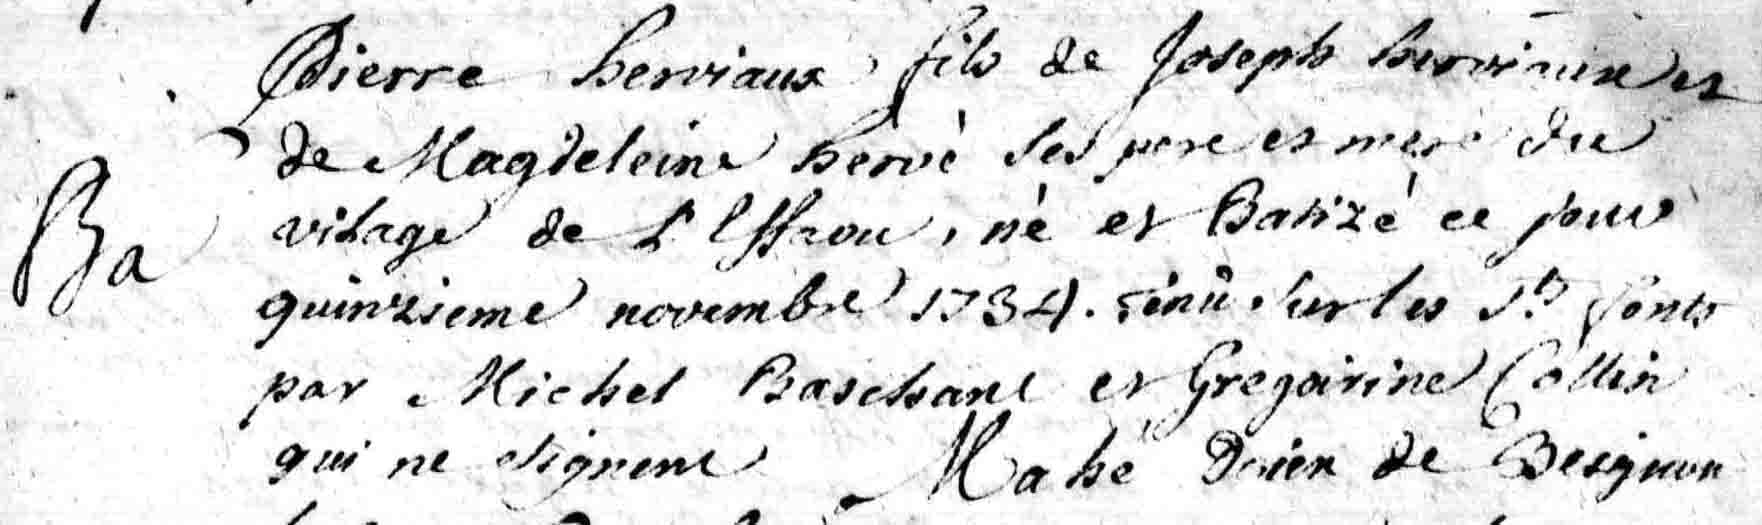 Pierre herviaux fils de Joseph herviaux et
de Magdeleine hervé ses pere et mere du
vilage de né et Batizé ce jour
Ba
quinzieme novembre 1734. tenu sur les Sts fonts
par Michel Baschant et Gregoirine Collin
qui ne signent Mahé Doien de Beignon